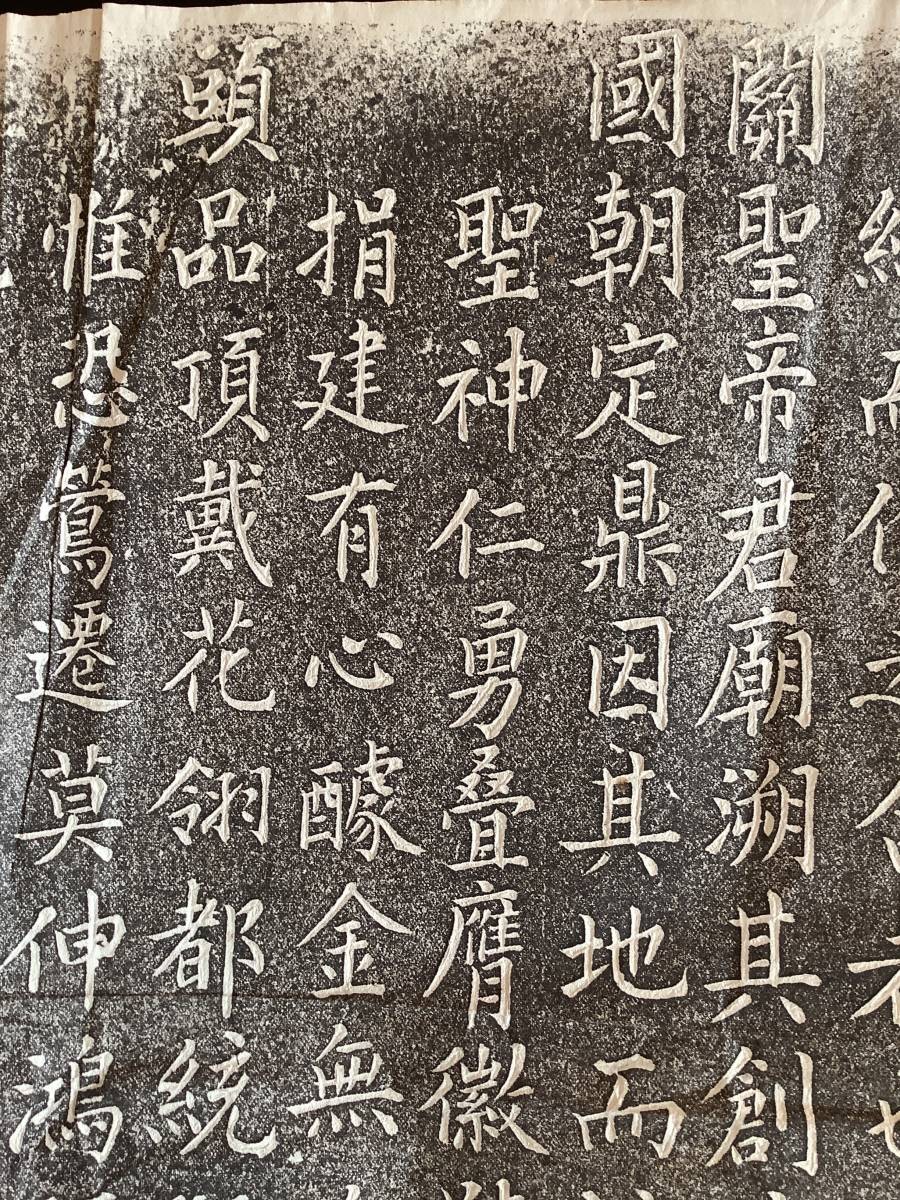 而
關聖帝君廟溯其創
國朝定鼎因其地而
聖神仁勇叠膺徽
捐建有心醵金無
頭品頂戴花翎都統
惟恐鶯遷莫伸鴻